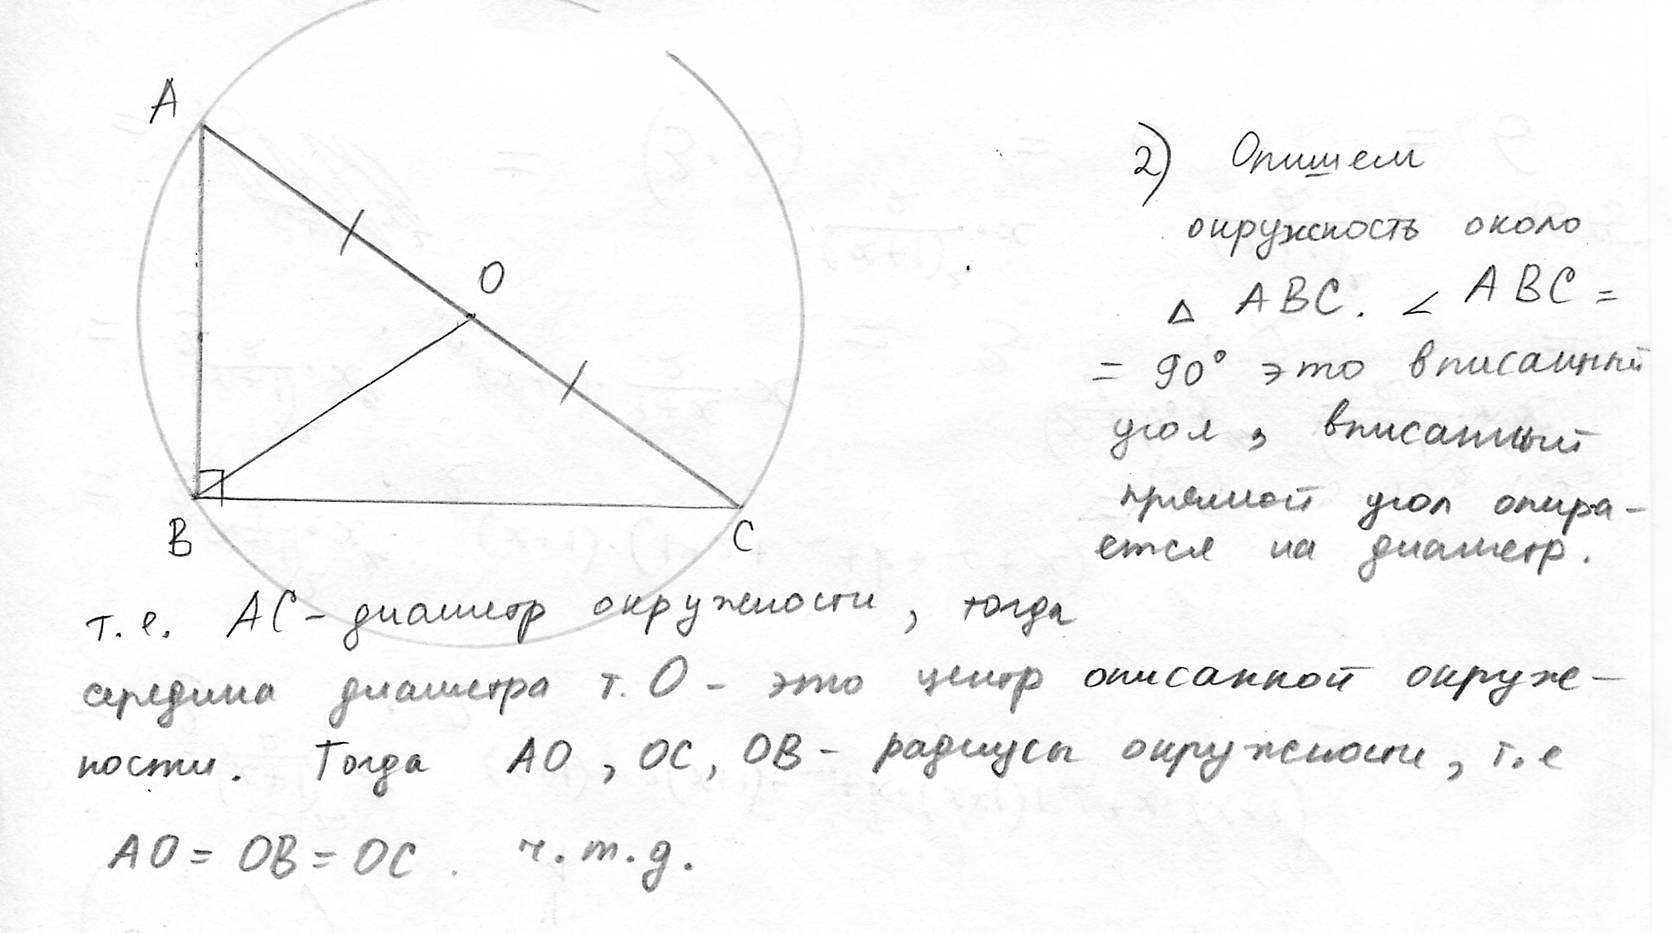 A
O
B
C
2) Опишем
окружность около
△ ABC. ∠ ABC =
= 90° это вписанный
угол, вписанный
прямой угол опира-
ется на диаметр.
т.е. AC - диаметр окружности, тогда
середина диаметра т. O - это центр описанной окруж-
ности. Тогда AO, OC, OB - радиусы окружности, т.е
AO = OB = OC. ч.т.д.